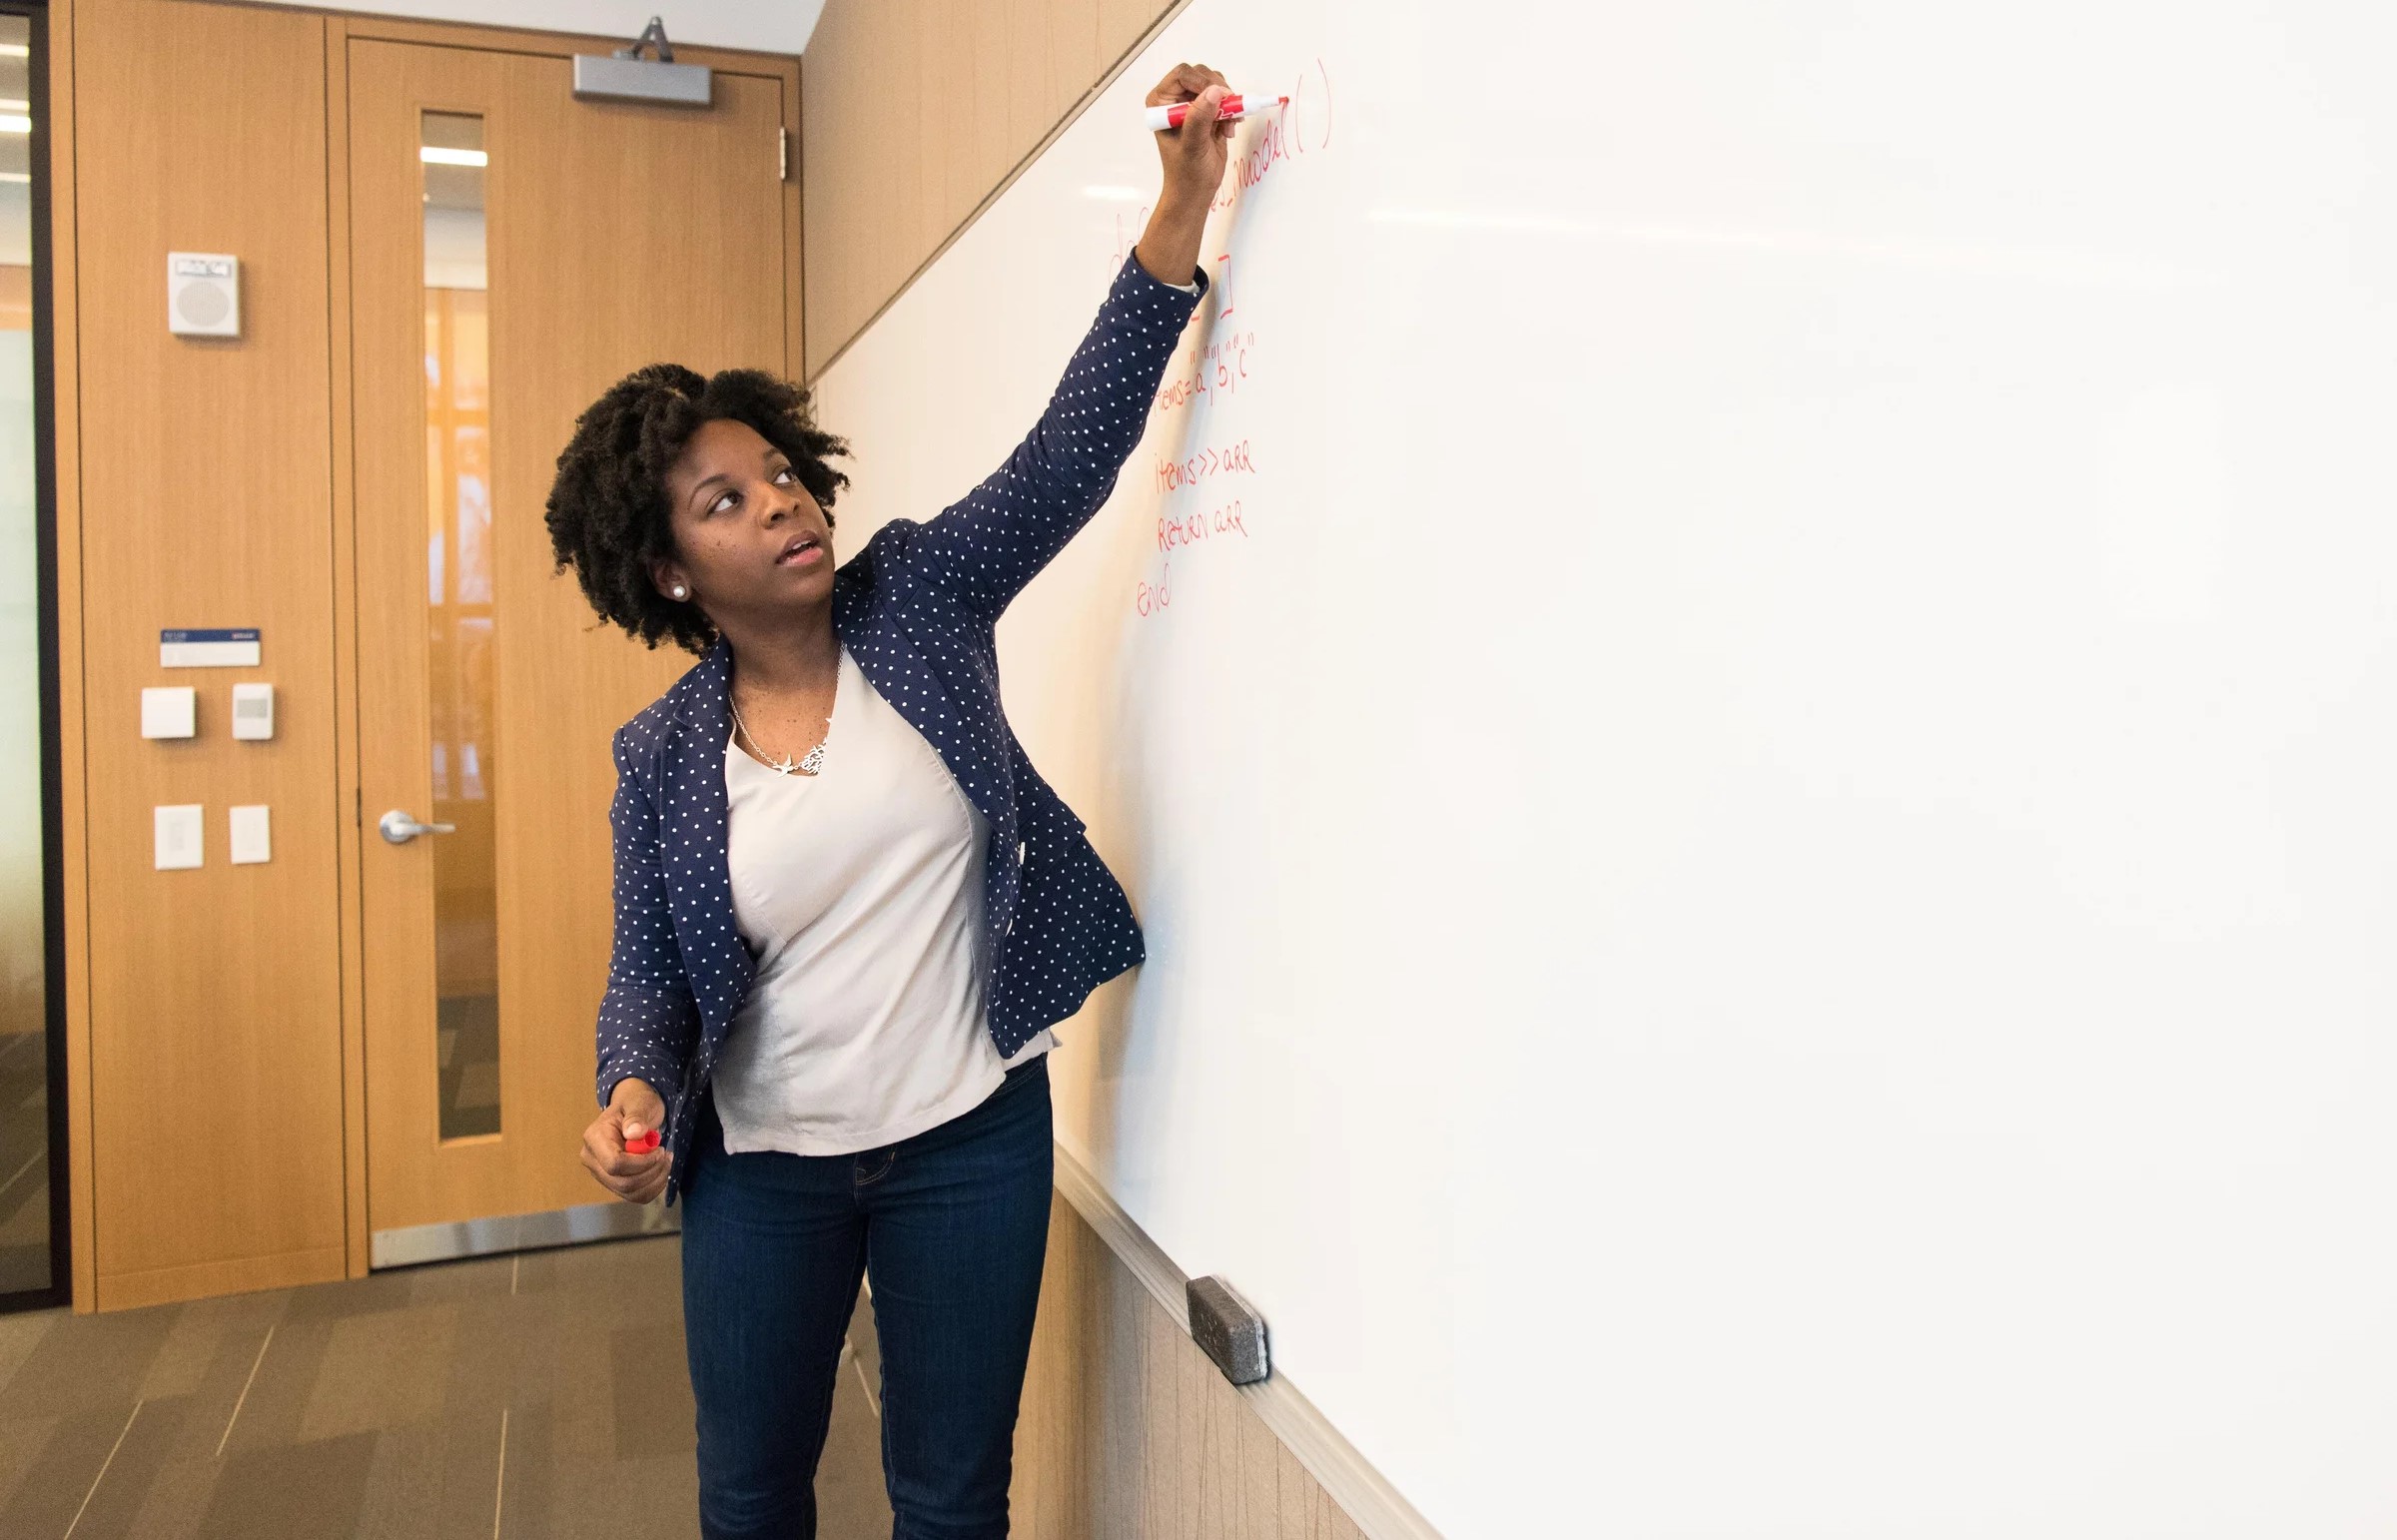 def _model()
]
items="a","b","c"
items>>arr
Return arr
end